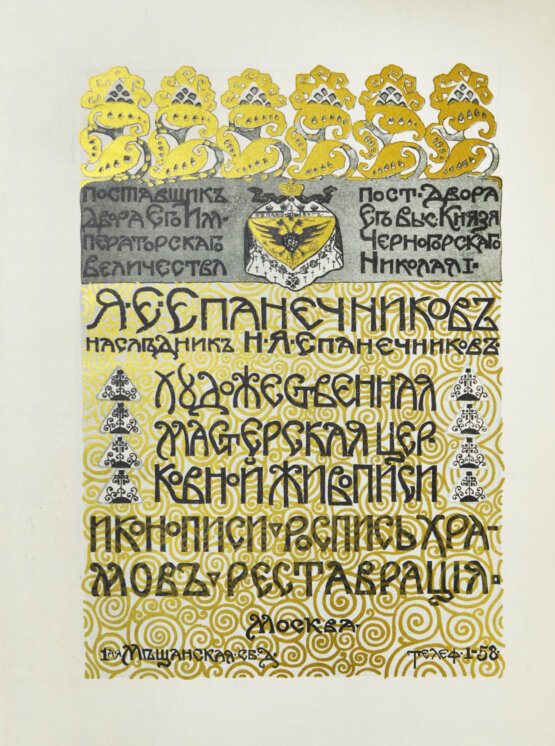 Поставщикъ
Двора Его Им-
ператорскаго
Величества
Пост. Двора
Его Выс. Князя
Черногорскаго
Николая I.
Я. Е. Епанечниковъ
наслѣдникъ Н. Я. Епанечниковъ.
Художественная
мастерская цер-
ковной живописи
иконописи роспись хра-
мовъ реставрація.
Москва.
1ая Мѣщанская. св. д.
Телеф. 1-58.